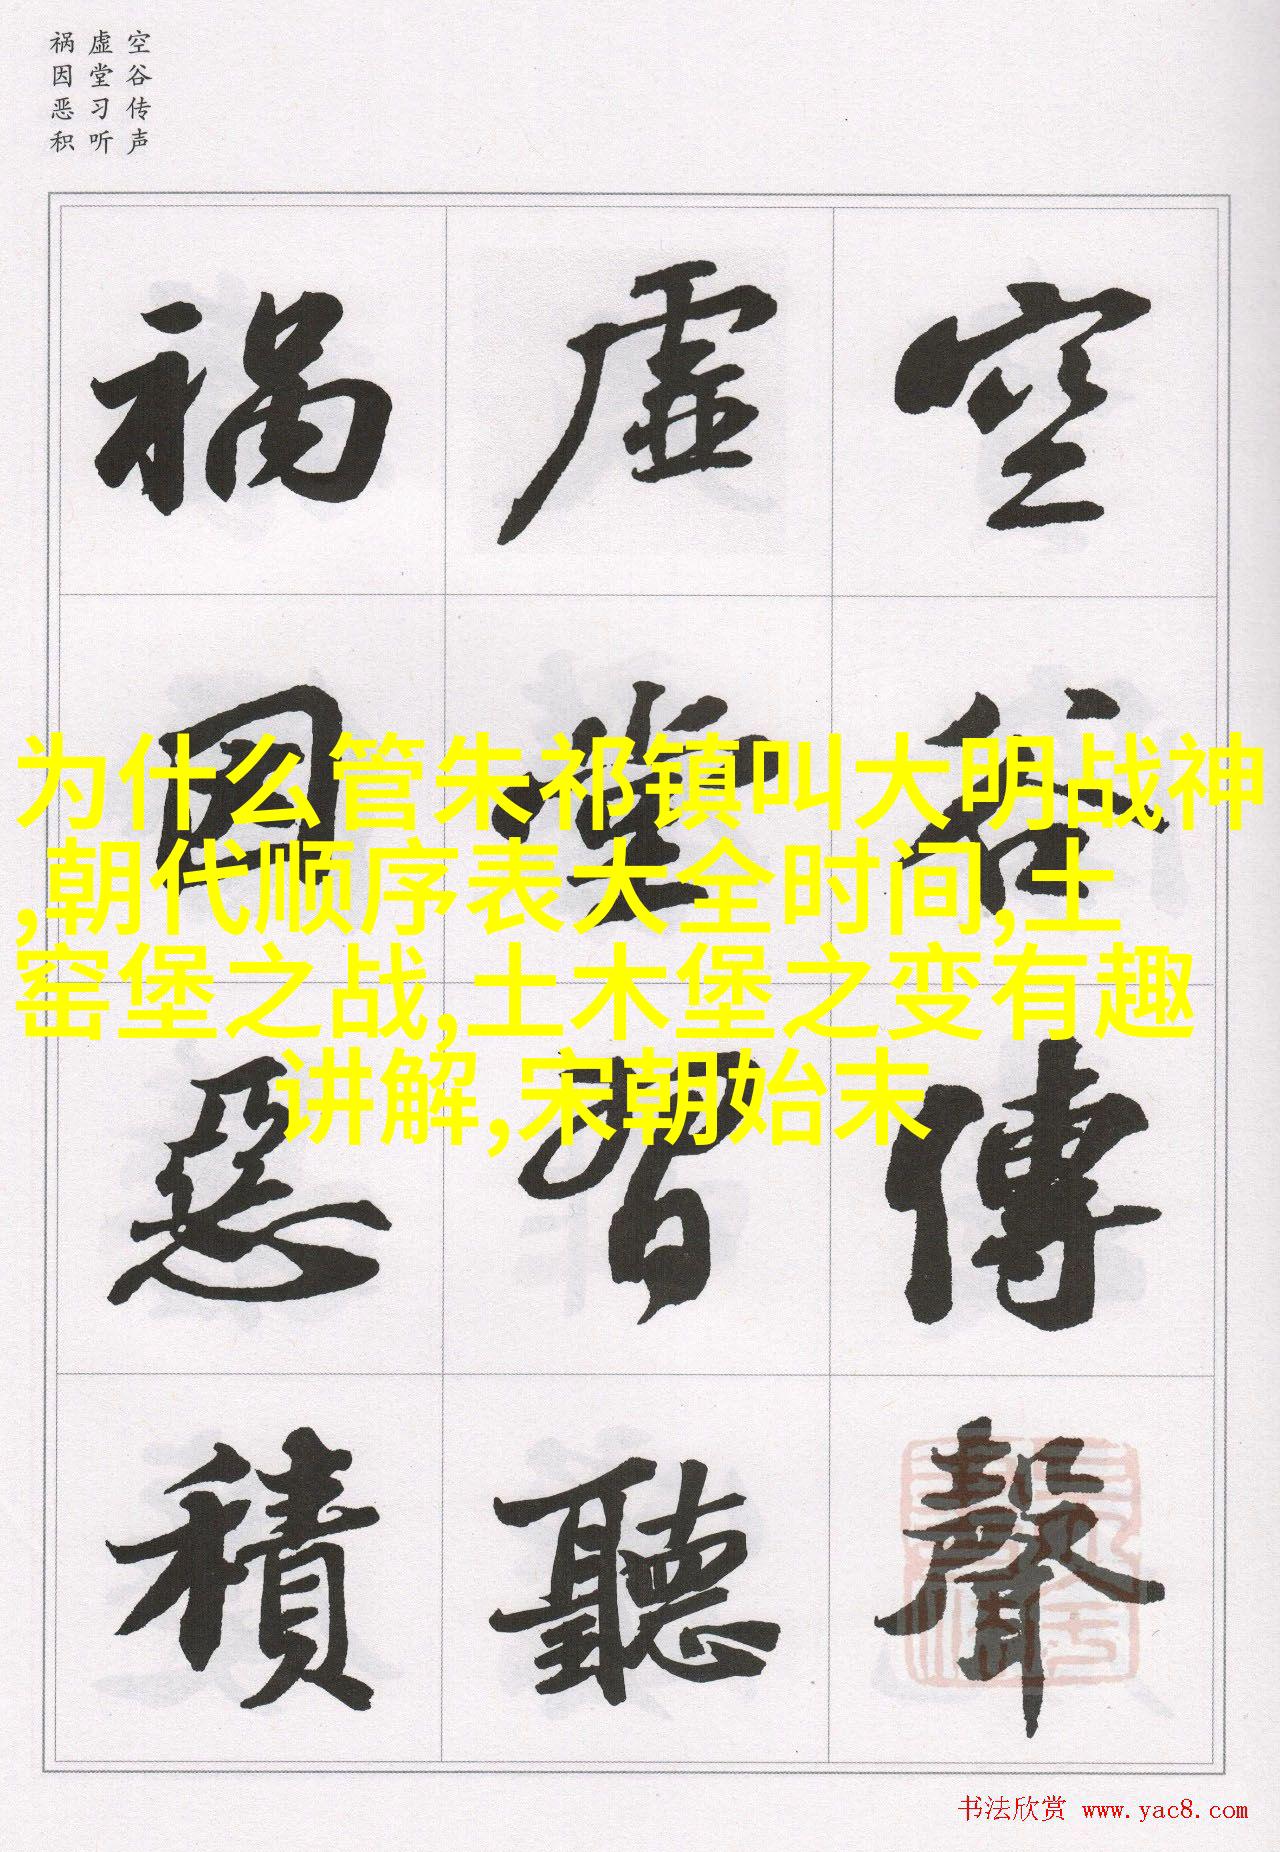 空谷传声
虚堂习听
祸因恶积
空谷傳聲
虚堂習聽
祸因惡積
为什么管朱祁镇叫大明战神
,朝代顺序表大全时间,土
窑堡之战,土木堡之变有趣
讲解,宋朝始末
书法欣赏 www.yac8.com